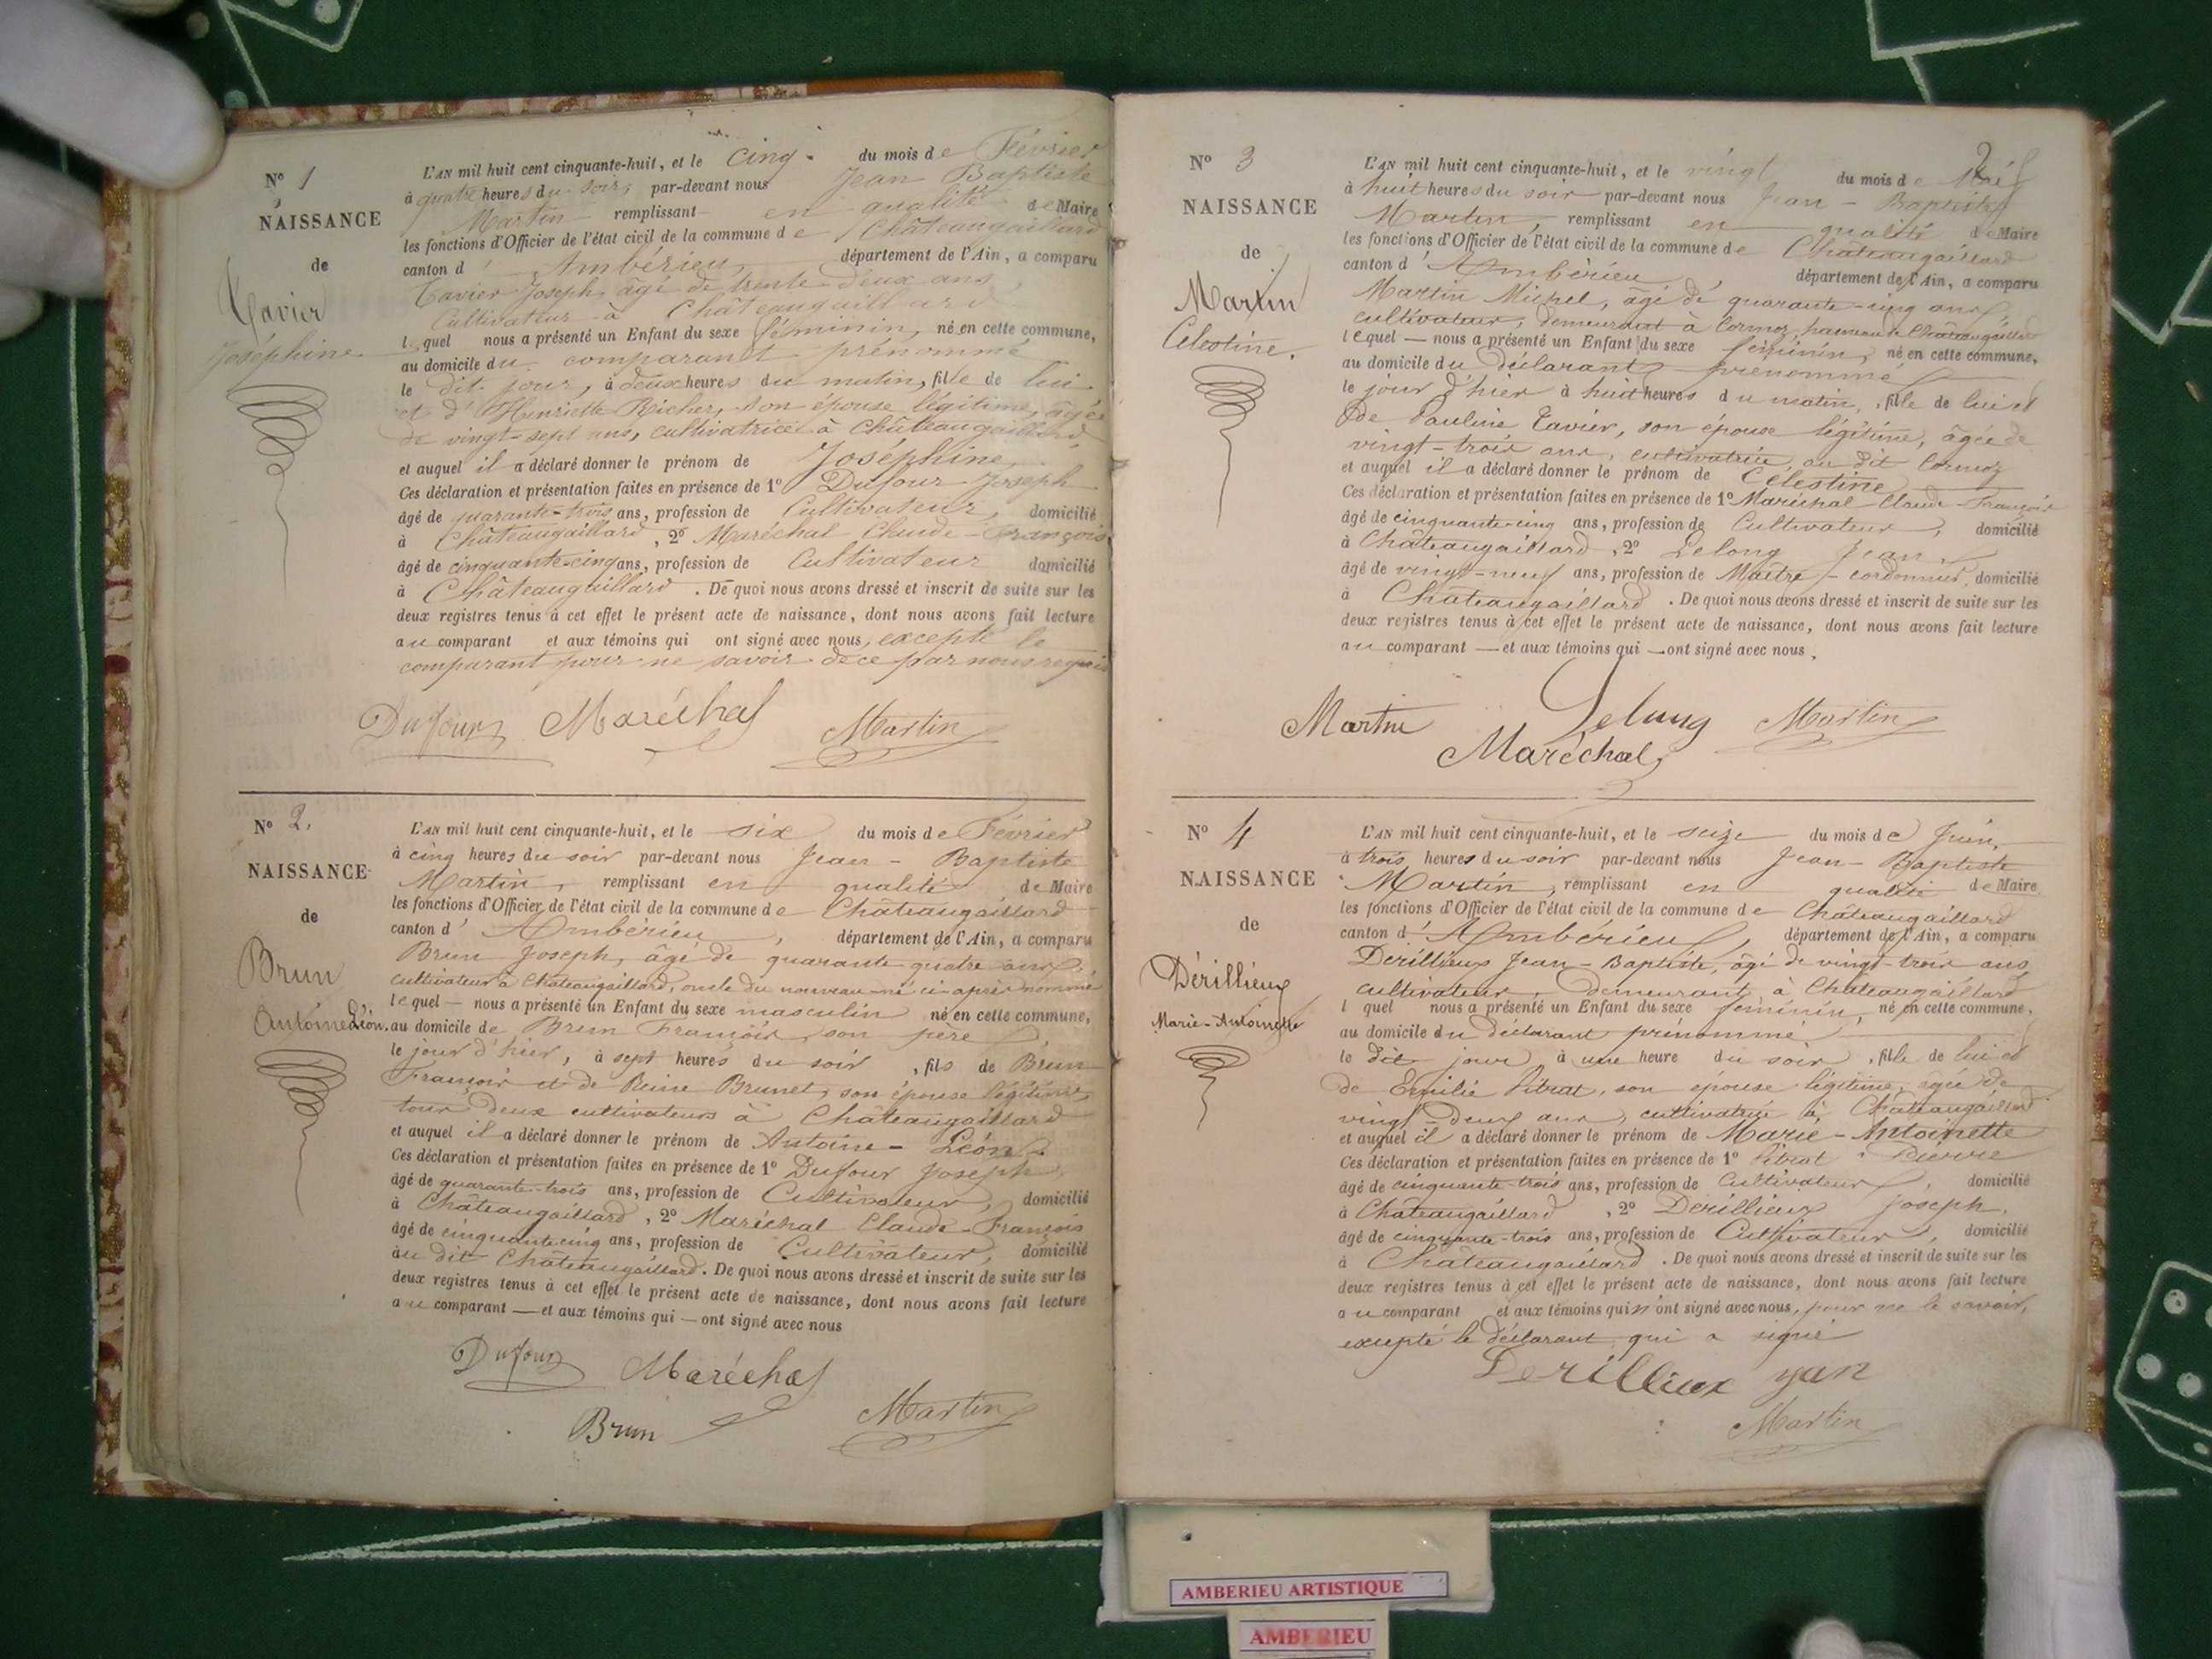 N° 1
NAISSANCE
de
Tavier
Joséphine
L'AN mil huit cent cinquante-huit, et le cinq du mois de Février
à quatre heures du soir, par-devant nous Jean Baptiste
Martin remplissant en qualité de Maire
les fonctions d'Officier de l'état civil de la commune de Châteaugaillard
canton d'Ambérieu, département de l'Ain, a comparu
Tavier Joseph, âgé de trente deux ans,
Cultivateur à Châteaugaillard
lequel nous a présenté un Enfant du sexe féminin, né en cette commune,
au domicile du comparant prénommé
le dit jour, à deux heures du matin, fille de lui
et d'Henriette Richer, son épouse légitime, âgée
de vingt-sept ans, cultivatrice à Châteaugaillard
et auquel il a déclaré donner le prénom de Joséphine
Ces déclaration et présentation faites en présence de 1° Dufour Joseph
âgé de quarante-trois ans, profession de Cultivateur, domicilié
à Châteaugaillard, 2° Maréchal Claude-François
âgé de cinquante-cinq ans, profession de Cultivateur domicilié
à Châteaugaillard. De quoi nous avons dressé et inscrit de suite sur les
deux registres tenus à cet effet le présent acte de naissance, dont nous avons fait lecture
au comparant et aux témoins qui ont signé avec nous, excepté le
comparant pour ne savoir de ce par nous requis
Dufour Maréchal Martin
N° 2.
NAISSANCE
de
Brun
Antoine Léon.
L'AN mil huit cent cinquante-huit, et le six du mois de Février
à cinq heures du soir par-devant nous Jean-Baptiste
Martin, remplissant en qualité de Maire
les fonctions d'Officier de l'état civil de la commune de Châteaugaillard
canton d'Ambérieu, département de l'Ain, a comparu
Brun Joseph, âgé de quarante quatre ans,
cultivateur à Châteaugaillard, oncle du nouveau-né ci-après nommé
lequel — nous a présenté un Enfant du sexe masculin né en cette commune,
au domicile de Brun François, son père
le jour d'hier, à sept heures du soir, fils de Brun
François et de Reine Brunet, son épouse légitime,
tous deux cultivateurs à Châteaugaillard
et auquel il a déclaré donner le prénom de Antoine-Léon
Ces déclaration et présentation faites en présence de 1° Dufour Joseph
âgé de quarante-trois ans, profession de Cultivateur, domicilié
à Châteaugaillard, 2° Maréchal Claude-François
âgé de cinquante cinq ans, profession de Cultivateur, domicilié
au dit Châteaugaillard. De quoi nous avons dressé et inscrit de suite sur les
deux registres tenus à cet effet le présent acte de naissance, dont nous avons fait lecture
au comparant — et aux témoins qui — ont signé avec nous
Dufour Maréchal
Brun Martin
2
N° 3
NAISSANCE
de
Martin
Célestine.
L'AN mil huit cent cinquante-huit, et le vingt du mois de Mai
à huit heures du soir par-devant nous Jean-Baptiste
Martin, remplissant en qualité de Maire
les fonctions d'Officier de l'état civil de la commune de Châteaugaillard
canton d'Ambérieu, département de l'Ain, a comparu
Martin Michel, âgé de quarante-cinq ans,
cultivateur, demeurant à Cormoz, hameau de Châteaugaillard
lequel — nous a présenté un Enfant du sexe féminin, né en cette commune,
au domicile du déclarant prénommé
le jour d'hier à huit heures du matin, fille de lui et
de Pauline Tavier, son épouse légitime, âgée de
vingt-trois ans, cultivatrice, au dit Cormoz
et auquel il a déclaré donner le prénom de Célestine
Ces déclaration et présentation faites en présence de 1° Maréchal Claude-François
âgé de cinquante-cinq ans, profession de Cultivateur, domicilié
à Châteaugaillard, 2° Lelong Jean,
âgé de vingt-neuf ans, profession de Maître-cordonnier, domicilié
à Châteaugaillard. De quoi nous avons dressé et inscrit de suite sur les
deux registres tenus à cet effet le présent acte de naissance, dont nous avons fait lecture
au comparant — et aux témoins qui — ont signé avec nous.
Martin Lelong Martin
Maréchal
N° 4
NAISSANCE
de
Dérillieux
Marie-Antoinette
L'AN mil huit cent cinquante-huit, et le seize du mois de Juin,
à trois heures du soir par-devant nous Jean-Baptiste
Martin, remplissant en qualité de Maire
les fonctions d'Officier de l'état civil de la commune de Châteaugaillard
canton d'Ambérieu, département de l'Ain, a comparu
Dérillieux Jean-Baptiste, âgé de vingt-trois ans,
cultivateur, demeurant à Châteaugaillard
l quel nous a présenté un Enfant du sexe féminin, né en cette commune,
au domicile du déclarant prénommé
le dit jour, à une heure du soir, fille de lui et
de Emilie Vibrat, son épouse légitime, âgée de
vingt-deux ans, cultivatrice à Châteaugaillard
et auquel il a déclaré donner le prénom de Marie-Antoinette
Ces déclaration et présentation faites en présence de 1° Vibrat Pierre
âgé de cinquante-trois ans, profession de Cultivateur, domicilié
à Châteaugaillard, 2° Dérillieux Joseph,
âgé de cinquante-trois ans, profession de Cultivateur, domicilié
à Châteaugaillard. De quoi nous avons dressé et inscrit de suite sur les
deux registres tenus à cet effet le présent acte de naissance, dont nous avons fait lecture
au comparant et aux témoins qui n'ont signé avec nous, pour ne le savoir,
excepté le déclarant qui a signé
Derillieux yan
Martin
AMBERIEU ARTISTIQUE
AMBERIEU